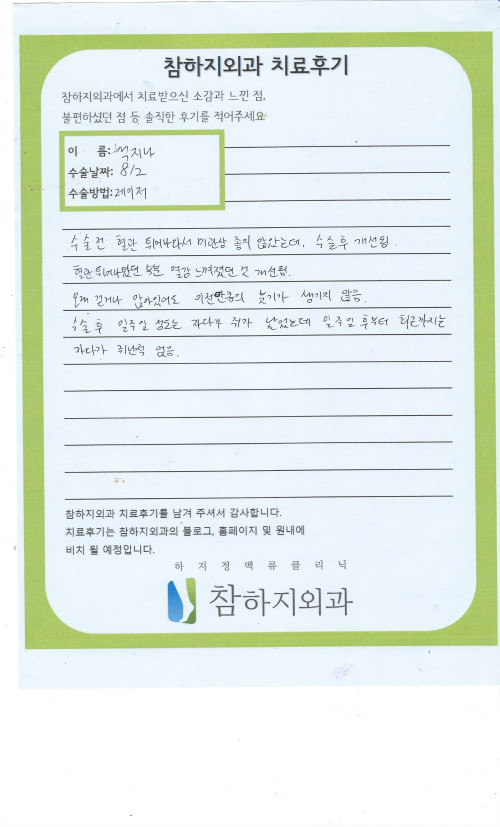 참하지외과 치료후기
참하지외과에서 치료받으신 소감과 느낀 점,
불편하셨던 점 등 솔직한 후기를 적어주세요
이 름: 지나
수술날짜: 8/2
수술방법: 레이저
수술전 혈관 튀어나와서 미관상 좋지 않았는데, 수술후 개선됨.
혈관 튀어나왔던 열감 느껴졌던 것 개선됨.
오래 걷거나 앉아있어도 이전만큼의 붓기가 생기지 않음.
수술 후 일주일 정도는 자다가 쥐가 났었는데 일주일 후부터 최근까지는
자다가 쥐난적 없음.
참하지외과 치료후기를 남겨 주셔서 감사합니다.
치료후기는 참하지외과의 블로그, 홈페이지 및 원내에
비치 될 예정입니다.
하지정맥류클리닉
참하지외과